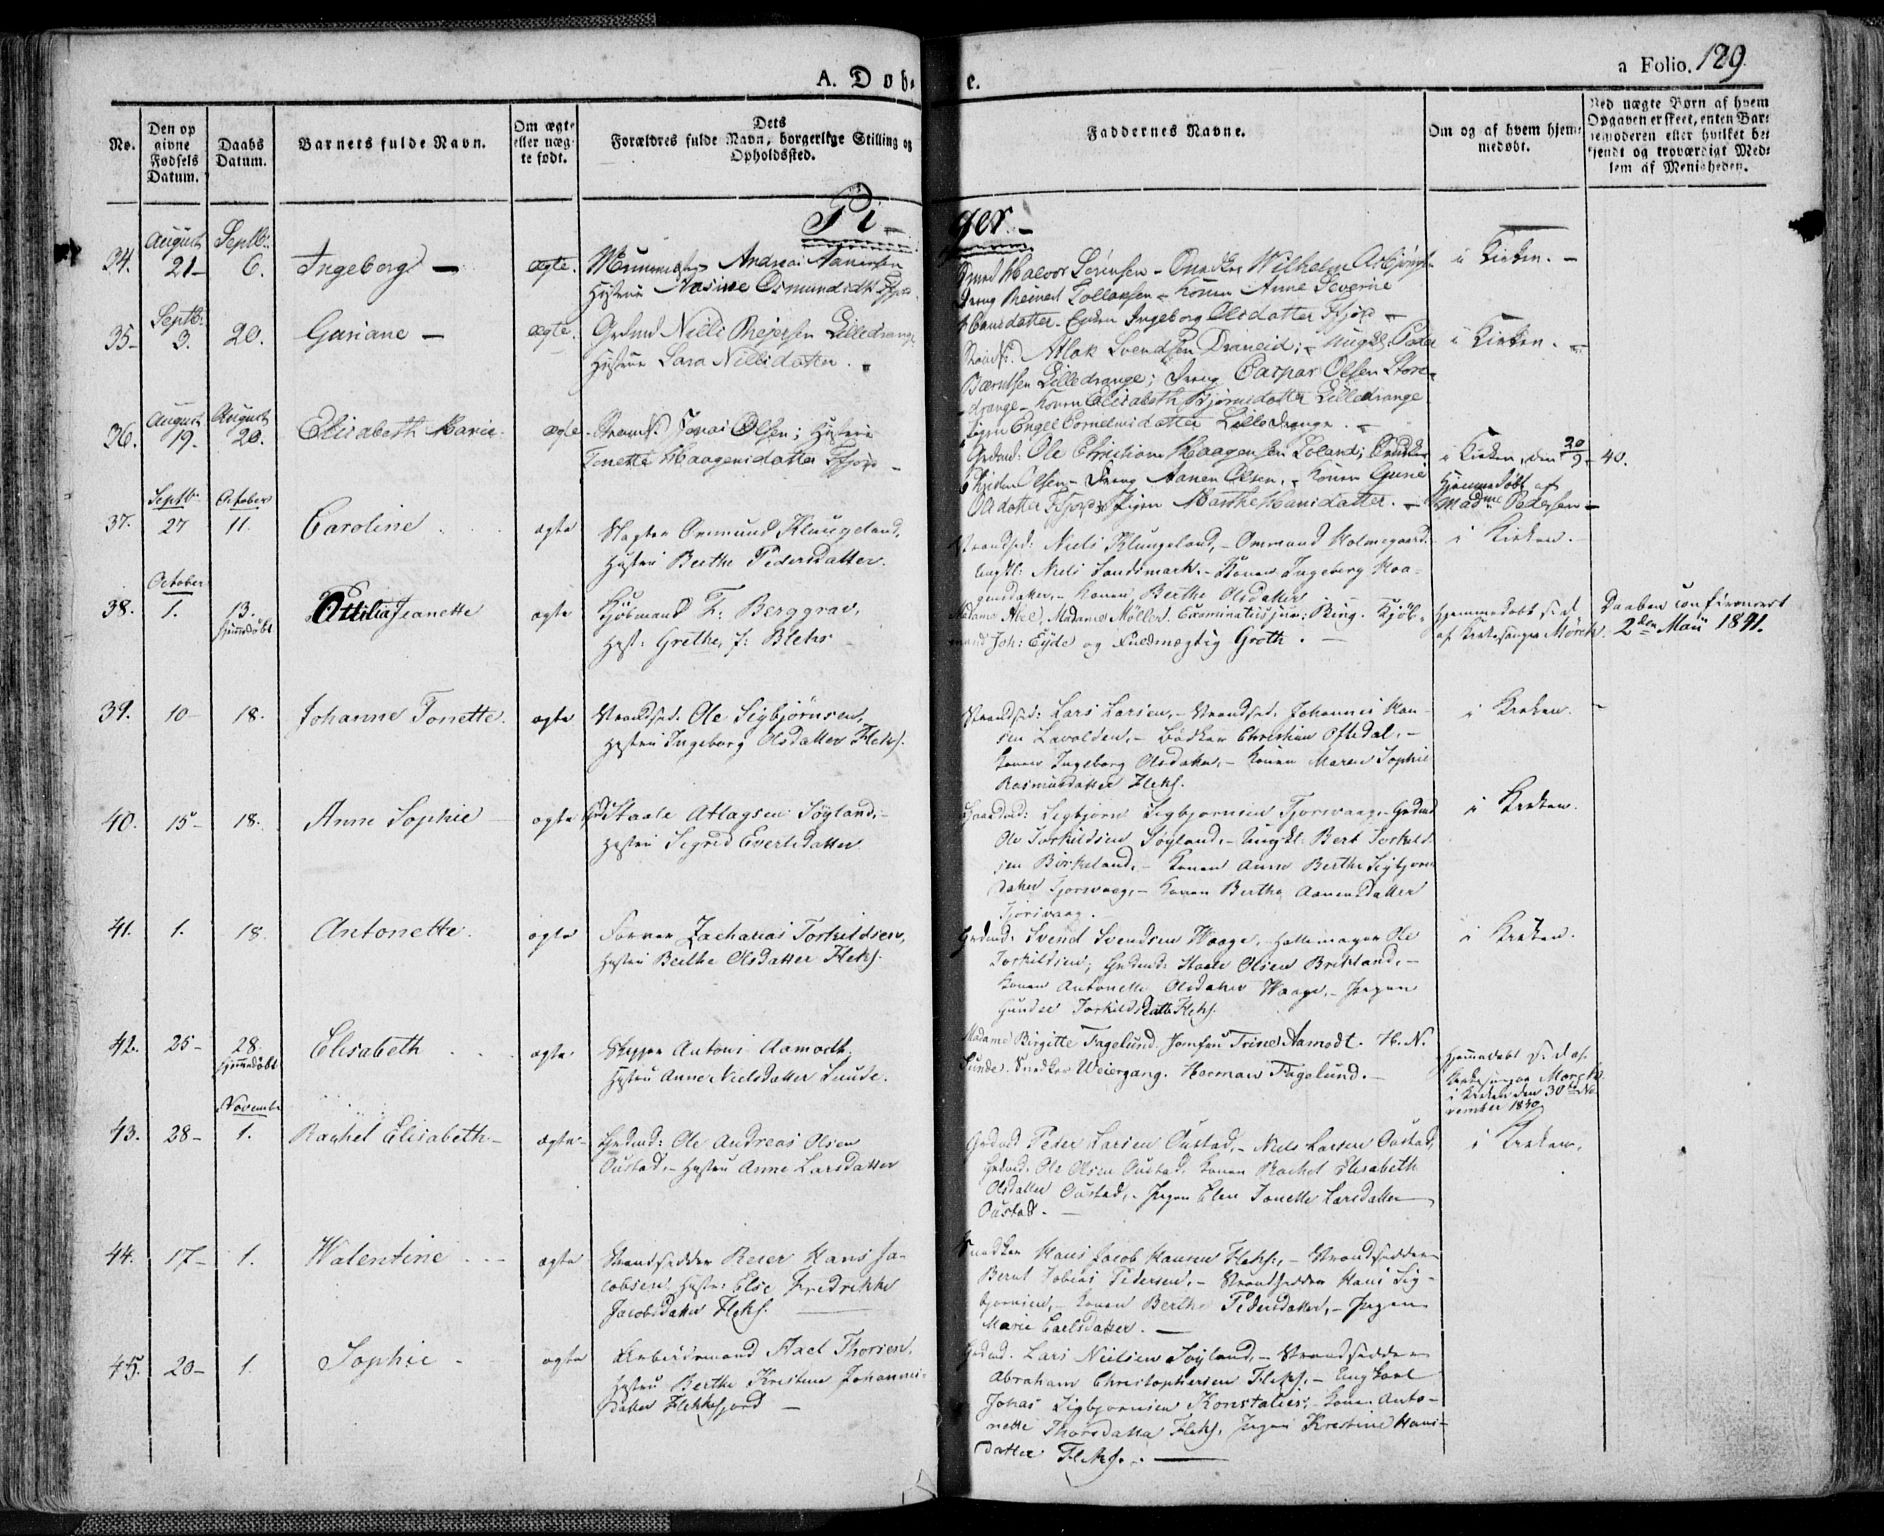 A. Døb- e.
a Folio. 129
No.
Den op givne Fødsels Datum.
Daabs Datum.
Barnets fulde Navn.
Om ægte eller uægte født.
Dets Forældres fulde Navn, borgerlige Stilling og Opholdssted.
Faddernes Navne.
Om og af hvem hjemmedøbt.
Ved uægte Børn af hvem Opgaven er skeet, enten Barnemoderen eller hvilket bekjendt og troværdigt Medlem af Menigheden.
Pi- ger.-
34. August 21- Septbr. 6. Ingeborg - ægte.
Andreas Aanensen
Hustrue Osmundsdtr
Halvor Sørensen - Snedker Wilhelm
Dreng Reinert Tollaksen - Konen Anne Severine
Hansdatter. Enken Ingeborg Olsdatter Ffjord -
i Kirken. -
35- Septbr. 3. 20. Gusiane - ægte.
Grdmd Niels Rejersen Lilledrange
Hustrue Sara Nilsdatter.
Atlak Svendsen Draneid; - Ungkl. Peder
Berntsen Lilledrange; Dreng Caspar Olsen Store-
drange - Konen Elisabeth Bjørnsdatter Lilledrange
Pigen Engel Cornelius datter Lilledrange. -
i Kirken. -
36. August 19- August 20. Elisabeth Marie. ægte
Strands. Jonas Olsen; Hustrue
Tonette Haagensdatter Ffjord -
Grdmd: Ole Christian Haagensen Loland;
Olsen - Dreng Aanen Olsen, - Konen Gurie
Olsdatter Ffjord; Pigen Marthe Hansdatter. -
i Kirken, den 20/9 - 40.
Hjemmedøbt af
Madme Pedersen -
37. Septbr 27 October 11. Caroline ægte
Ommund Klungeland,
Hustru Berthe Pedersdatter.
Strandsid: Niels Klungeland, - Ommund Holmegaard.
Ungkl: Niels Sandsmark. - Konen Ingeborg Haa-
gensdatter - Konen Berthe Olsdatter
i Kirken. -
38. October 1. 13. hjemmedøbt Ottilia Jeanette ægte
Kjøbmand F: Berggrav,
Hust: Grethe, f: Blehr
Madame Abel, Madame Møller. Examinatus jur: Bing. Kjøb-
mand Joh: Eyde og Fuldmægtig Groth. -
Hjemmedøbt s: d:
af Kirkesanger Mørch.
Daaben confirmeret
2den Mai 1841.
39. 10- 18. Johanne Tonette. ægte
Strandsid: Ole Sigbjørnsen,
Hustru Ingeborg Olsdatter Flekf.
Strandsid: Lars Larsen, - Strandsid: Johannes Han-
sen Lavolden, - Bødker Christian Oftedal, -
Konen Ingeborg Olsdatter, - Konen Maren Sophie
Rasmusdatter Flekf.
i Kirken.
40. 15- 18. Anne Sophie ægte
Staale Atlagsen Søyland, -
Hustru Segrid Evertsdatter
Sigbjørn Sigbjørnsen Tjorsvaag. Grdmd
Ole Torkildsen Søyland, - Ungkl: Bert Torkild-
sen Birkeland, - Konen Anne Berthe Sigbjørns-
datter Tjorsvaag, - Konen Berthe Aanensdatter
Tjorsvaag.
i Kirken.
41. 1. 18. Antonette. ægte
Farver Zacharias Torkildsen,
Hustru Berthe Olsdatter Flekf.
Grdmd: Svend Svendsen Waage, - Hattemager Ole
Torkildsen; Grdmd: Staale Olsen Birkland, -
Konen Antonette Olsdatter Waage, - Pigen
Gundel Torkildsdatter Flekf.
i Kirken.
42. 25- 28. hjemmedøbt Elisabeth ægte
Skipper Antoni Aamodt,
Hustru Anne Nielsdatter Sunde.
Madame Birgitte Fagelund. Jomfru Trine Aamodt. H. N.
Sunde. Snedker Weiergang. Herman Fagelund. -
Hjemmedøbt s: d: af
Kirkesanger Mørch
i Kirken den 30te No
vember 1840
43. 28- November 1. Rachel Elisabeth - ægte -
Grdmd: Ole Andreas Olsen
Oustad, - Hustru Anne Larsdatter
Grdmd Peder Larsen Oustad, - Niels Larsen Oustad,
Grdmd: Ole Olsen Oustad. Konen Rachel Elisabeth
Olsdatter Oustad, - Pigen Elen Tonette Larsdatter
Oustad. -
i Kirken.
44. 17- 1. Walentine ægte
Strandsidder Reier Hans Ja-
cobsen, Hustru Else Fredrikke
Jacobsdatter Flekf.
Snedker Hans Jacob Hansen Flekf:, - Strandsidder
Bernt Tobias Pedersen, - Strandsidder Hans Sig-
bjørnsen, - Konen Berthe Pedersdatter, - Pigen
Marie Carlsdatter. -
45. 20- 1. Sophie - ægte
Arbeidsmand Axel Thorsen,
Hustru Berthe Kristine Johannes-
datter Flekkefjord -
Grdmd. Lars Nielsen Søyland, - Strandsidder
Abraham Christophersen Flekf. - Ungkarl
Johas Sigbjørnsen Konstalier, - Konen Anto-
nette Thorsdatter Flekf. Pigen Kirstine Hans-
datter Flekf. -